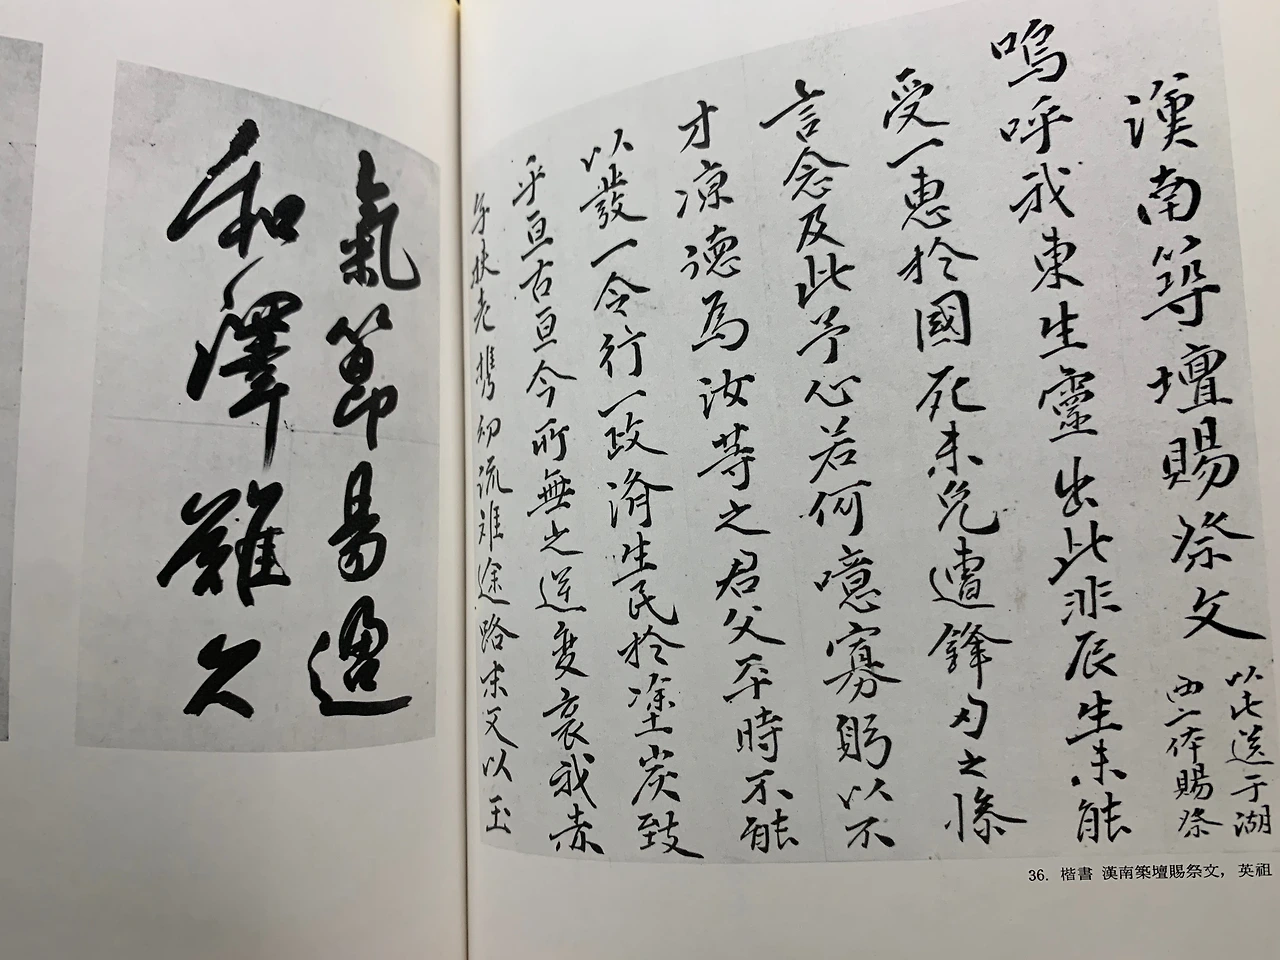 漢南築壇賜祭文
以此送于湖
西一体賜祭
嗚呼我東生靈出此非辰生未能
受一惠於國死未免遭鋒刃之慘
言念及此予心若何噫寡躬以不
才凉德為汝等之君父平時不能
以發一令行一政済生民於塗炭致
乎亘古亘今所無之逆变哀我赤
子扶老携幼流離途路又以玉
36. 楷書 漢南築壇賜祭文, 英祖
氣節易過
和澤難久